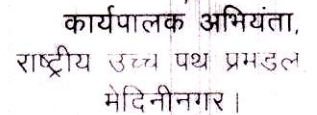 कार्यपालक अभियंता,
राष्ट्रीय उच्च पथ प्रमडल
मेदिनीनगर।